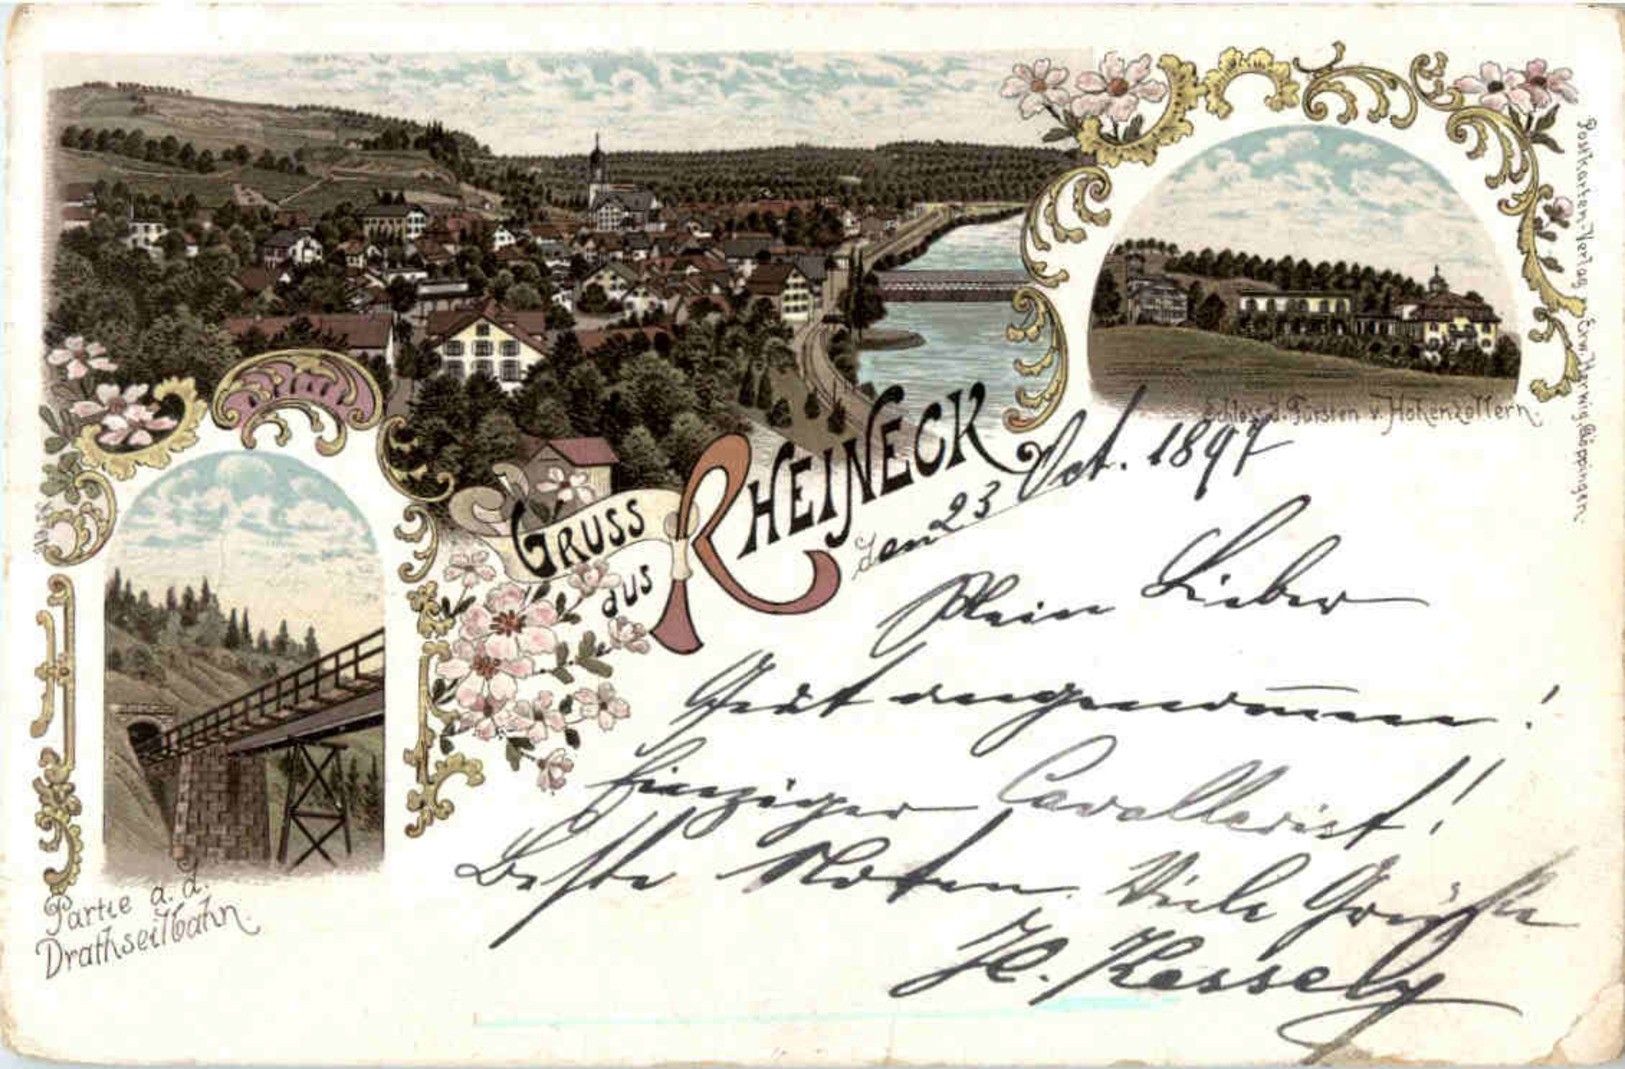 Gruss
aus
Rheineck
Schloss d. Fürsten v. Hohenzollern.
Postkarten-Verlag v. Erw. Herwig, Göppingen.
Partie a. d.
Drathseilbahn.
den 23 Oct. 1897
Mein Lieber
Gut angenommen!
Einziger Cavallerist!
Beste Noten. Viele Grüsse
H.